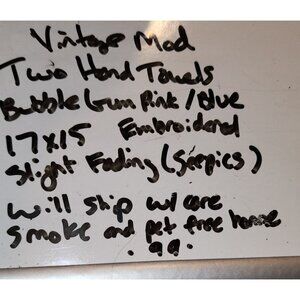 Vintage Mod
Two Hand Towels
Bubble Gum Pink/blue
17x15 Embroidered
Slight Fading (See pics)
will ship w/ care
smoke and pet free home
.99.